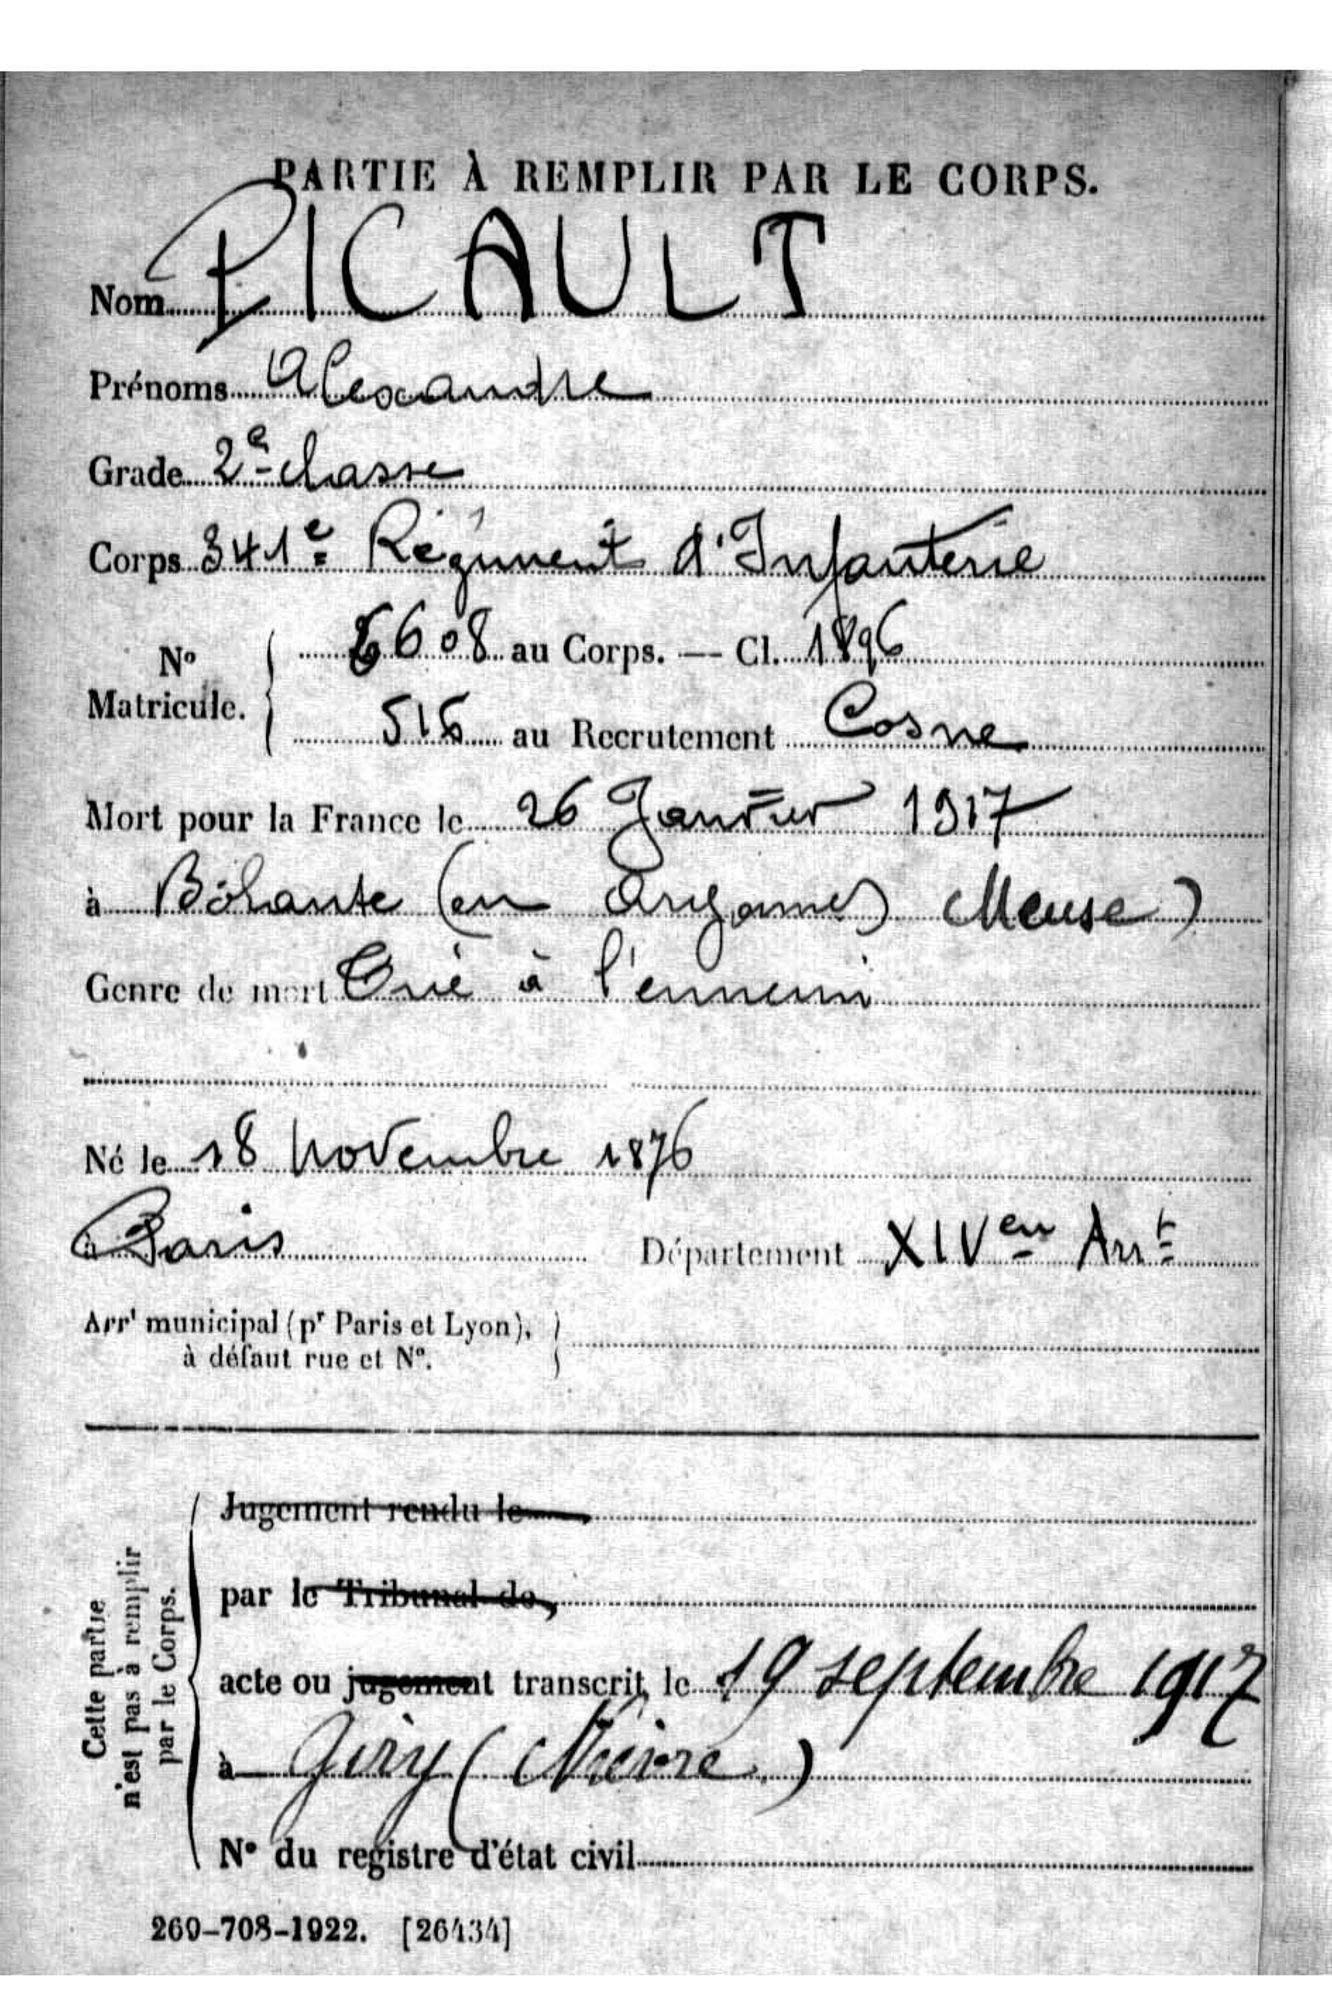 PARTIE À REMPLIR PAR LE CORPS.
Nom PICAULT
Prénoms Alexandre
Grade 2e classe
Corps 341e Régiment d'Infanterie
N° Matricule. 6608 au Corps. — Cl. 1896
516 au Recrutement Cosne
Mort pour la France le 26 Janvier 1917
à Bolante (en Argonne) Meuse)
Genre de mort Tué à l'ennemi
Né le 18 novembre 1876
à Paris Département XIVem Arrt
Arrt municipal (pr Paris et Lyon),
à défaut rue et N°.
Cette partie
n'est pas à remplir
par le Corps.
Jugement rendu le
par le Tribunal de
acte ou jugement transcrit le 19 septembre 1917
à Giry (Nièvre)
N° du registre d'état civil
269-708-1922. [26434]